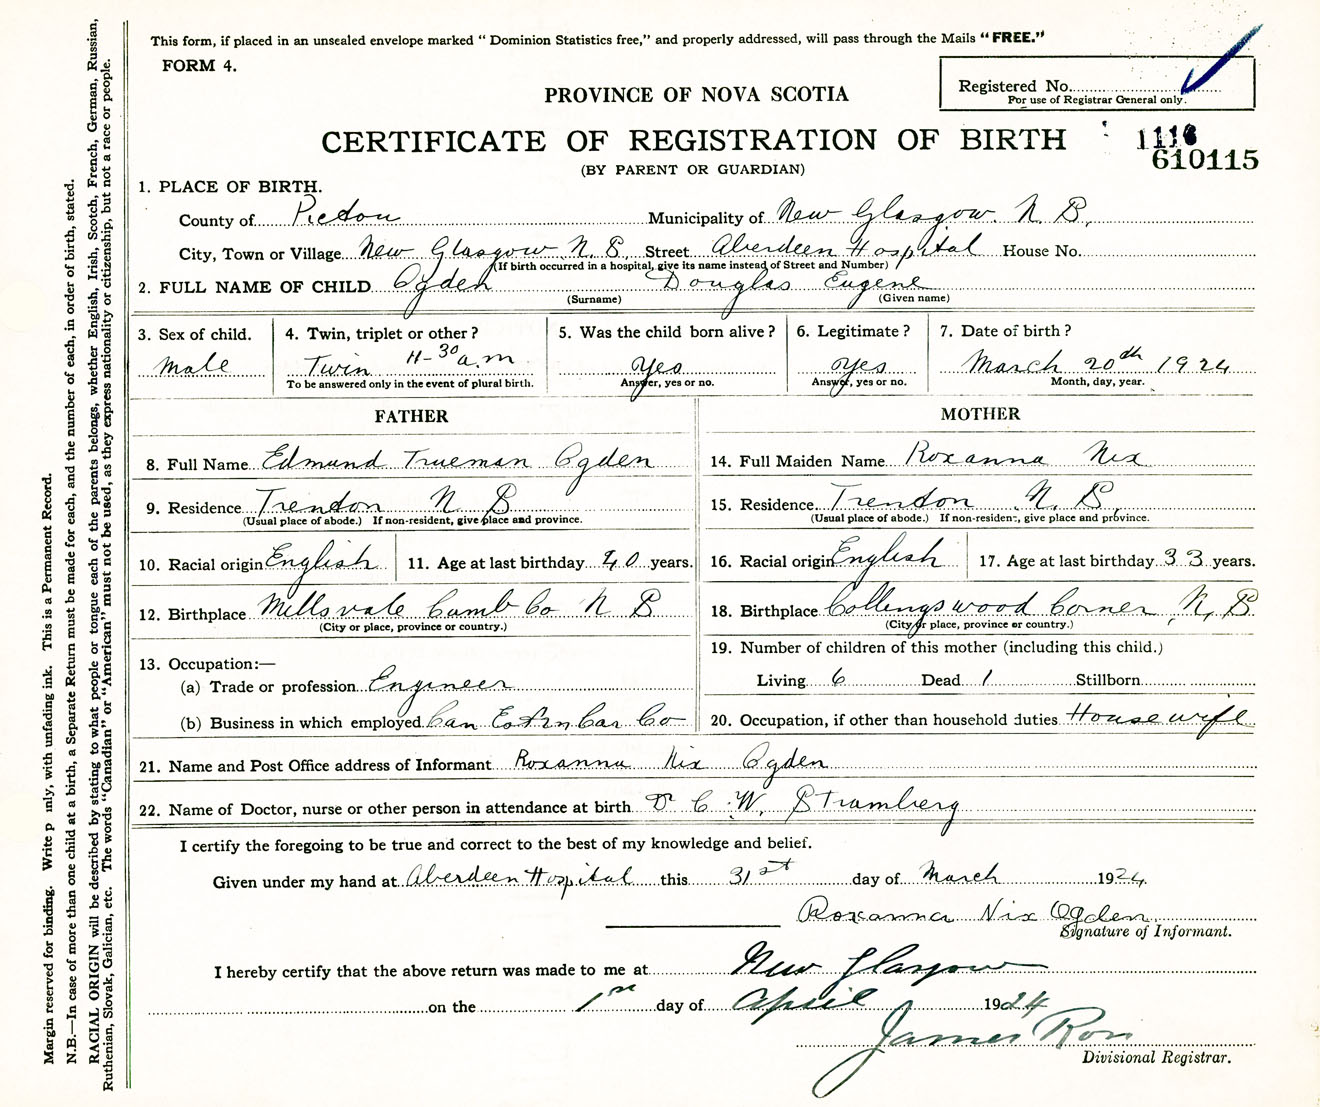 This form, if placed in an unsealed envelope marked " Dominion Statistics free," and properly addressed, will pass through the Mails "FREE."
FORM 4.
Registered No.
For use of Registrar General only.
PROVINCE OF NOVA SCOTIA
CERTIFICATE OF REGISTRATION OF BIRTH
1116
610115
(BY PARENT OR GUARDIAN)
1. PLACE OF BIRTH.
County of Pictou Municipality of New Glasgow. N. S.
City, Town or Village New Glasgow N. S. Street Aberdeen Hospital House No.
(If birth occurred in a hospital, give its name instead of Street and Number)
2. FULL NAME OF CHILD Ogden Douglas Eugene
(Surname) (Given name)
3. Sex of child. 4. Twin, triplet or other? 5. Was the child born alive? 6. Legitimate? 7. Date of birth?
Male Twin 11-30 a.m Yes Yes March 20th 1924
To be answered only in the event of plural birth. Answer, yes or no. Answer, yes or no. Month, day, year.
FATHER MOTHER
8. Full Name Edmund Trueman Ogden 14. Full Maiden Name Roxanna Nix
9. Residence Trenton N S 15. Residence Trenton N. S.
(Usual place of abode.) If non-resident, give place and province. (Usual place of abode.) If non-resident, give place and province.
10. Racial origin English 11. Age at last birthday 40 years. 16. Racial origin English 17. Age at last birthday 33 years.
12. Birthplace Millsvale Cumb Co N S 18. Birthplace Collingswood Corner N. S.
(City or place, province or country.) (City or place, province or country.)
19. Number of children of this mother (including this child.)
13. Occupation:—
(a) Trade or profession Engineer Living 6 Dead 1 Stillborn
(b) Business in which employed Can Car Co 20. Occupation, if other than household duties House wife
21. Name and Post Office address of Informant Roxanna Nix Ogden
22. Name of Doctor, nurse or other person in attendance at birth Dr C. W. Stramberg
I certify the foregoing to be true and correct to the best of my knowledge and belief.
Given under my hand at Aberdeen Hospital this 31st day of March 1924
Roxanna Nix Ogden
Signature of Informant.
I hereby certify that the above return was made to me at New Glasgow
on the 1st day of April 1924
James Ross
Divisional Registrar.
Margin reserved for binding. Write p nly, with unfading ink. This is a Permanent Record.
N.B.—In case of more than one child at a birth, a Separate Return must be made for each, and the number of each, in order of birth, stated.
RACIAL ORIGIN will be described by stating to what people or tongue each of the parents belongs, whether English, Irish, Scotch, French, German, Russian,
Ruthenian, Slovak, Galician, etc. The words "Canadian" or "American" must not be used, as they express nationality or citizenship, but not a race or people.